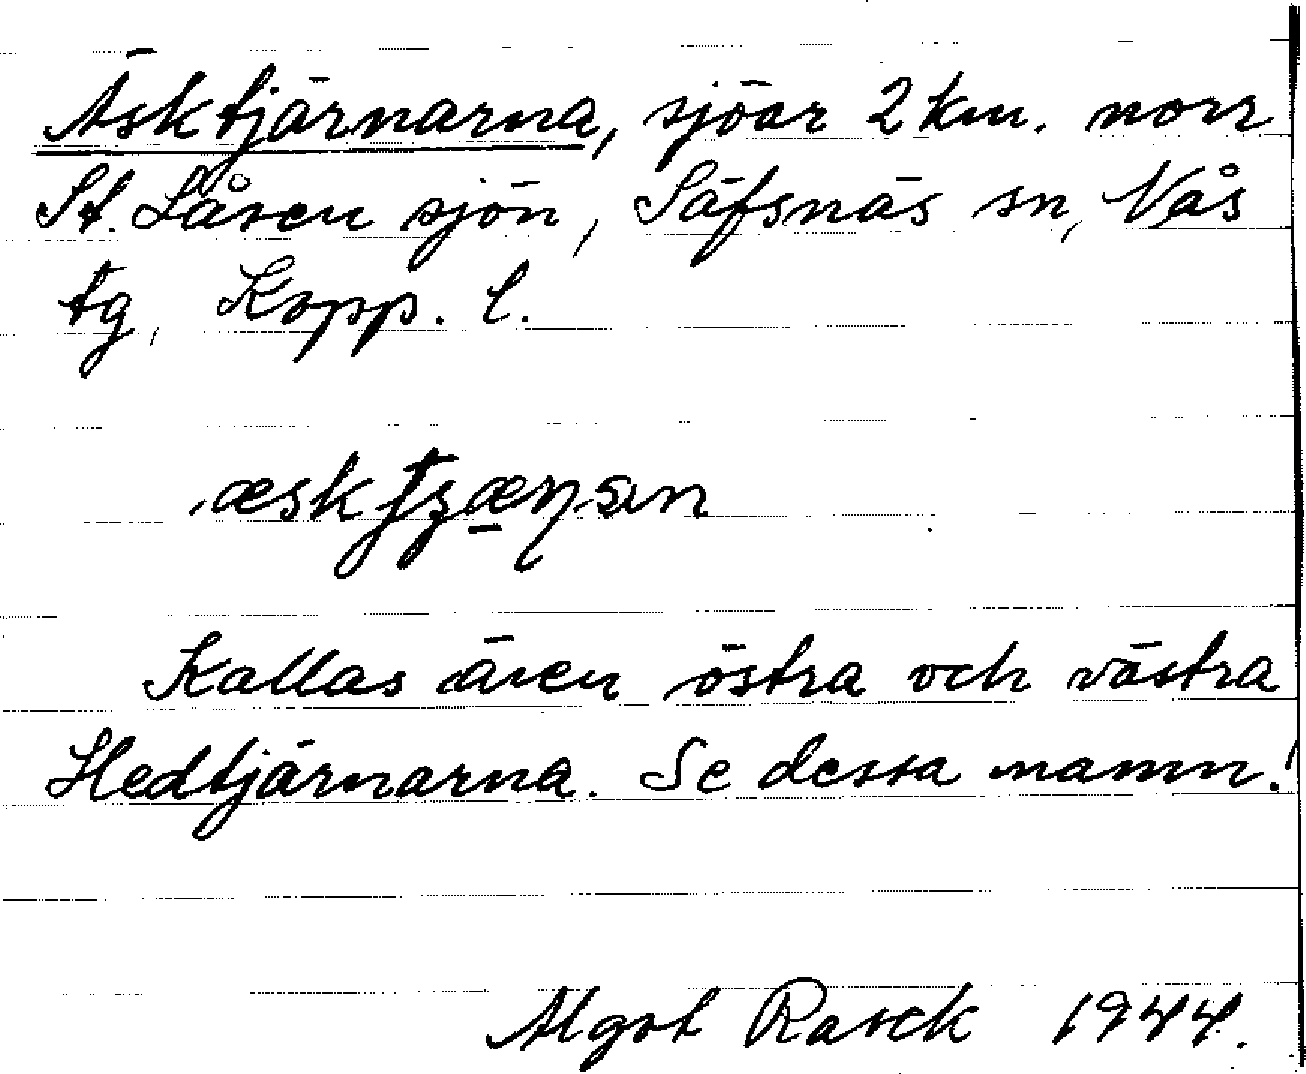 Äsktjärnarna, sjöar 2 km. norr
St. Låsen sjön, Säfsnäs sn, Nås
tg, Kopp. l.
Kallas även östra och västra
Hedtjärnarna. Se dessa namn!
Algot Rasck 1944.